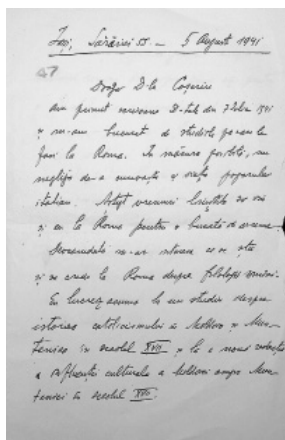 Iași, Sărăriei 55 – 5 August 1941
Dragă D-le Coșeriu
Am primit scrisoarea D-tale din 7 Iulie 1941
și m-am bucurat de studiile pe care le
faci la Roma. În măsura posibilă, nu
neglija de a cunoaște și viața poporului
italian. Aceste vremuri liniștite vor
și eu la Roma pentru o bucată de vreme.
Deocamdată m-ar interesa ce se știe
și se crede la Roma despre filologii români.
Eu lucrez acuma la un studiu despre
istoria catolicismului în Moldova și Mun-
tenia în secolul XVII și la o nouă redacție
a influenței culturale a Moldovei asupra Mun-
teniei în secolul XVII.